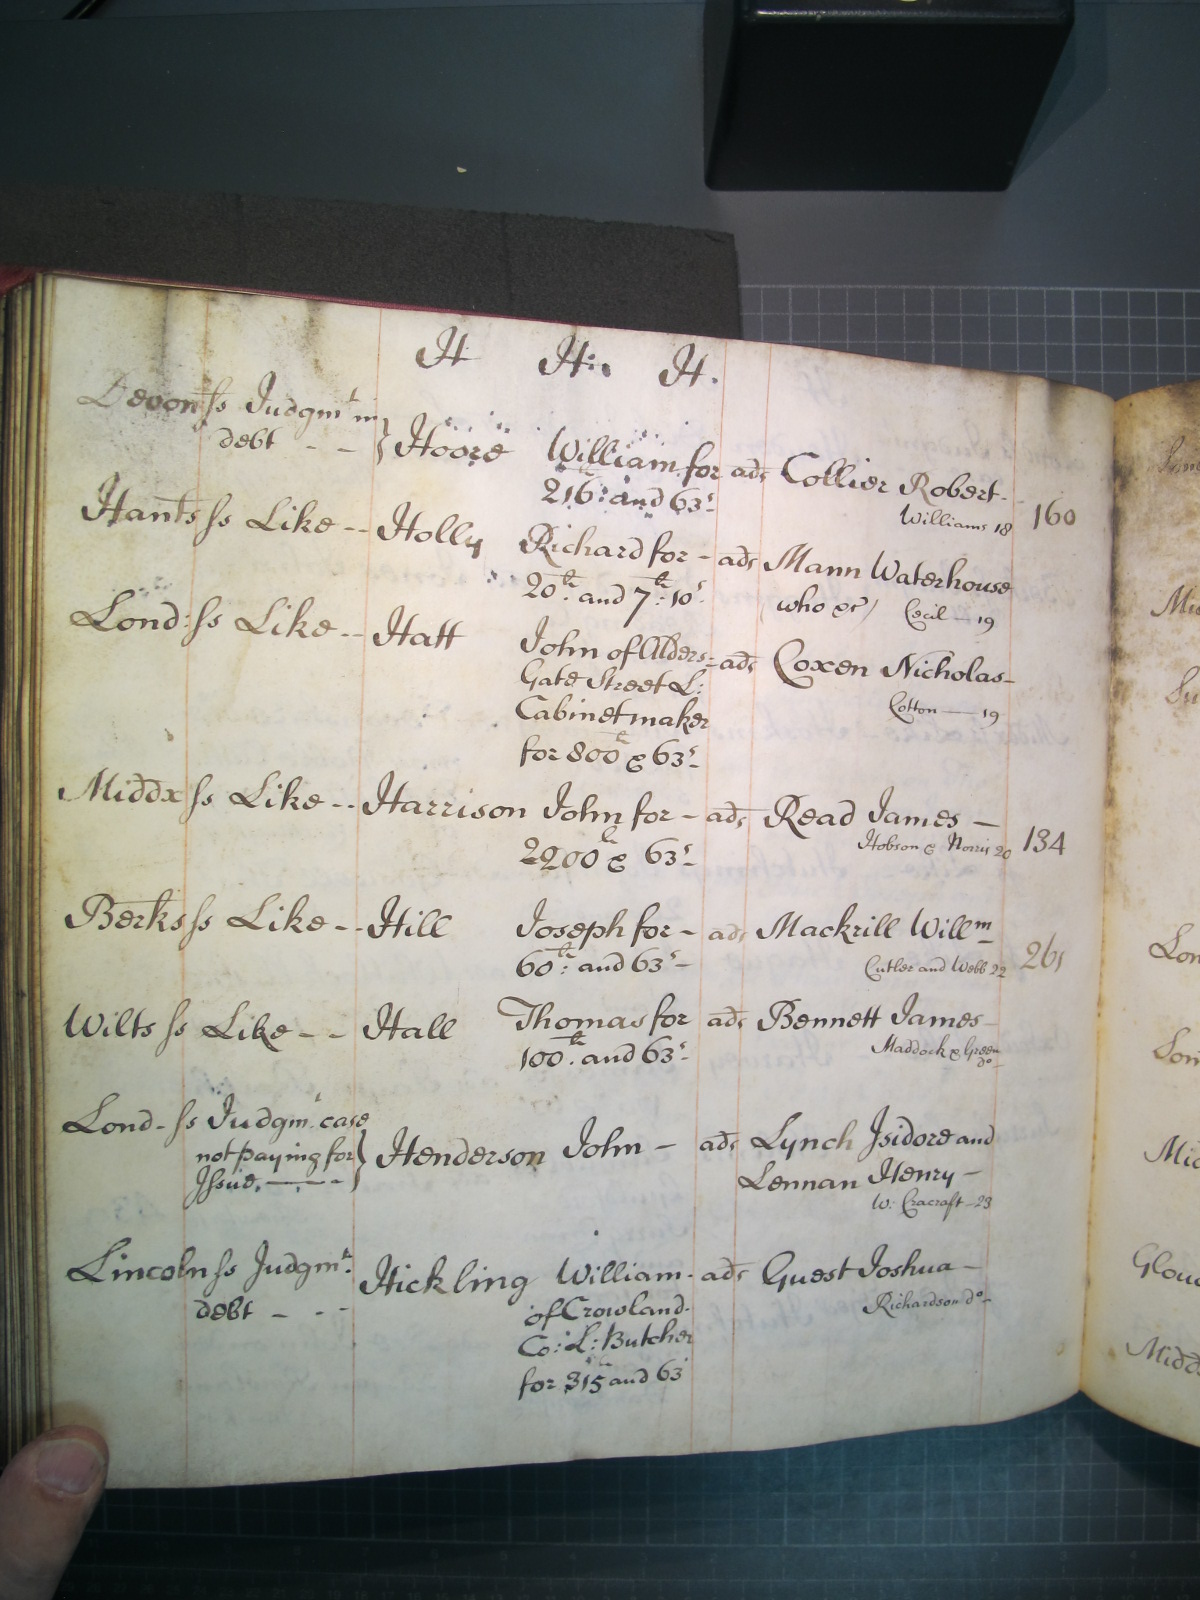 H H: H.
Devon ss Judgmt in
debt - - } Hoore William for ads Collier Robert -
216: and 63s Williams 18 160
Hants ss Like -- Holly Richard for - ads Mann Waterhouse
20li: and 7li: 10s who &c) Cecil — 19
Lond: ss Like -- Hatt John of Alders= ads Coxen Nicholas -
Gate Street L: Cotton — 19
Cabinetmaker
for 800li & 63s
Middx ss Like -- Harrison John for - ads Read James —
2200li & 63s Hobson & Norris 20 134
Berks ss Like -- Hill Joseph for - ads Mackrill Willm
60li: and 63s - Cutler and Webb 22 261
Wilts ss Like - - Hall Thomas for ads Bennett James -
100li. and 63s - Maddock & Green
do -
Lond - ss Judgmt. case
not paying for } Henderson John - ads Lynch Isidore and
Issue. - - - Lennan Henry -
W: Cracraft - 23
Lincoln ss Judgmt: Hickling William - ads Guest Joshua -
debt - - - of Crowland Richardson do -
Co: L: Butcher
for 315li and 63s